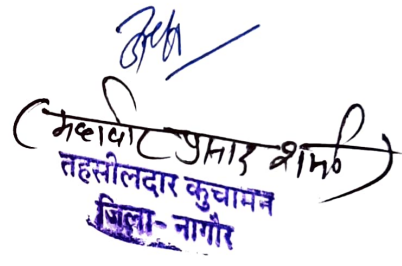 (महावीर प्रसाद शर्मा)
तहसीलदार कुचामन
जिला - नागौर